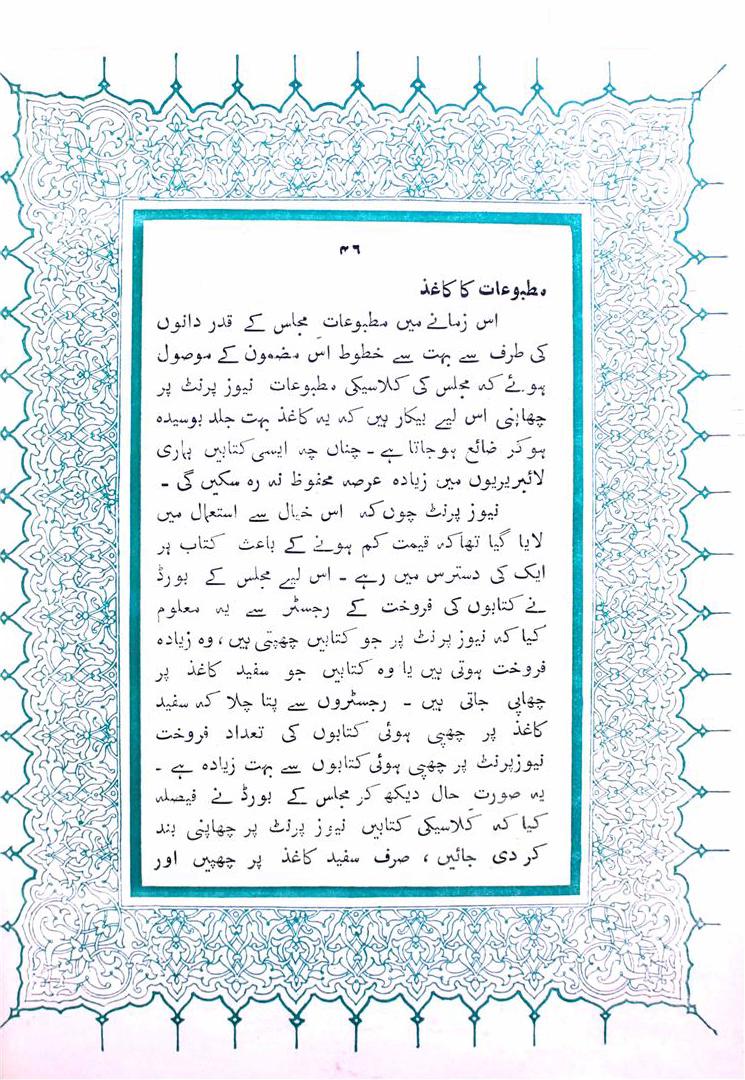 ۴۶
مطبوعات کا کاغذ
اس زمانے میں مطبوعاتِ مجلس کے قدر دانوں
کی طرف سے بہت سے خطوط اس مضمون کے موصول
ہوئے کہ مجلس کی کلاسیکی مطبوعات نیوز پرنٹ پر
چھاپنی اس لیے بیکار ہیں کہ یہ کاغذ بہت جلد بوسیدہ
ہو کر ضائع ہو جاتا ہے ۔ چناں چہ ایسی کتابیں ہماری
لائبریریوں میں زیادہ عرصہ محفوظ نہ رہ سکیں گی ۔
نیوز پرنٹ چوں کہ اس خیال سے استعمال میں
لایا گیا تھا کہ قیمت کم ہونے کے باعث کتاب ہر
ایک کی دسترس میں رہے ۔ اس لیے مجلس کے بورڈ
نے کتابوں کی فروخت کے رجسٹر سے یہ معلوم
کیا کہ نیوز پرنٹ پر جو کتابیں چھپتی ہیں ، وہ زیادہ
فروخت ہوتی ہیں یا وہ کتابیں جو سفید کاغذ پر
چھاپی جاتی ہیں ۔ رجسٹروں سے پتا چلا کہ سفید
کاغذ پر چھپی ہوئی کتابوں کی تعداد فروخت
نیوز پرنٹ پر چھپی ہوئی کتابوں سے بہت زیادہ ہے ۔
یہ صورتِ حال دیکھ کر مجلس کے بورڈ نے فیصلہ
کیا کہ کلاسیکی کتابیں نیوز پرنٹ پر چھاپنی بند
کر دی جائیں ، صرف سفید کاغذ پر چھپیں اور